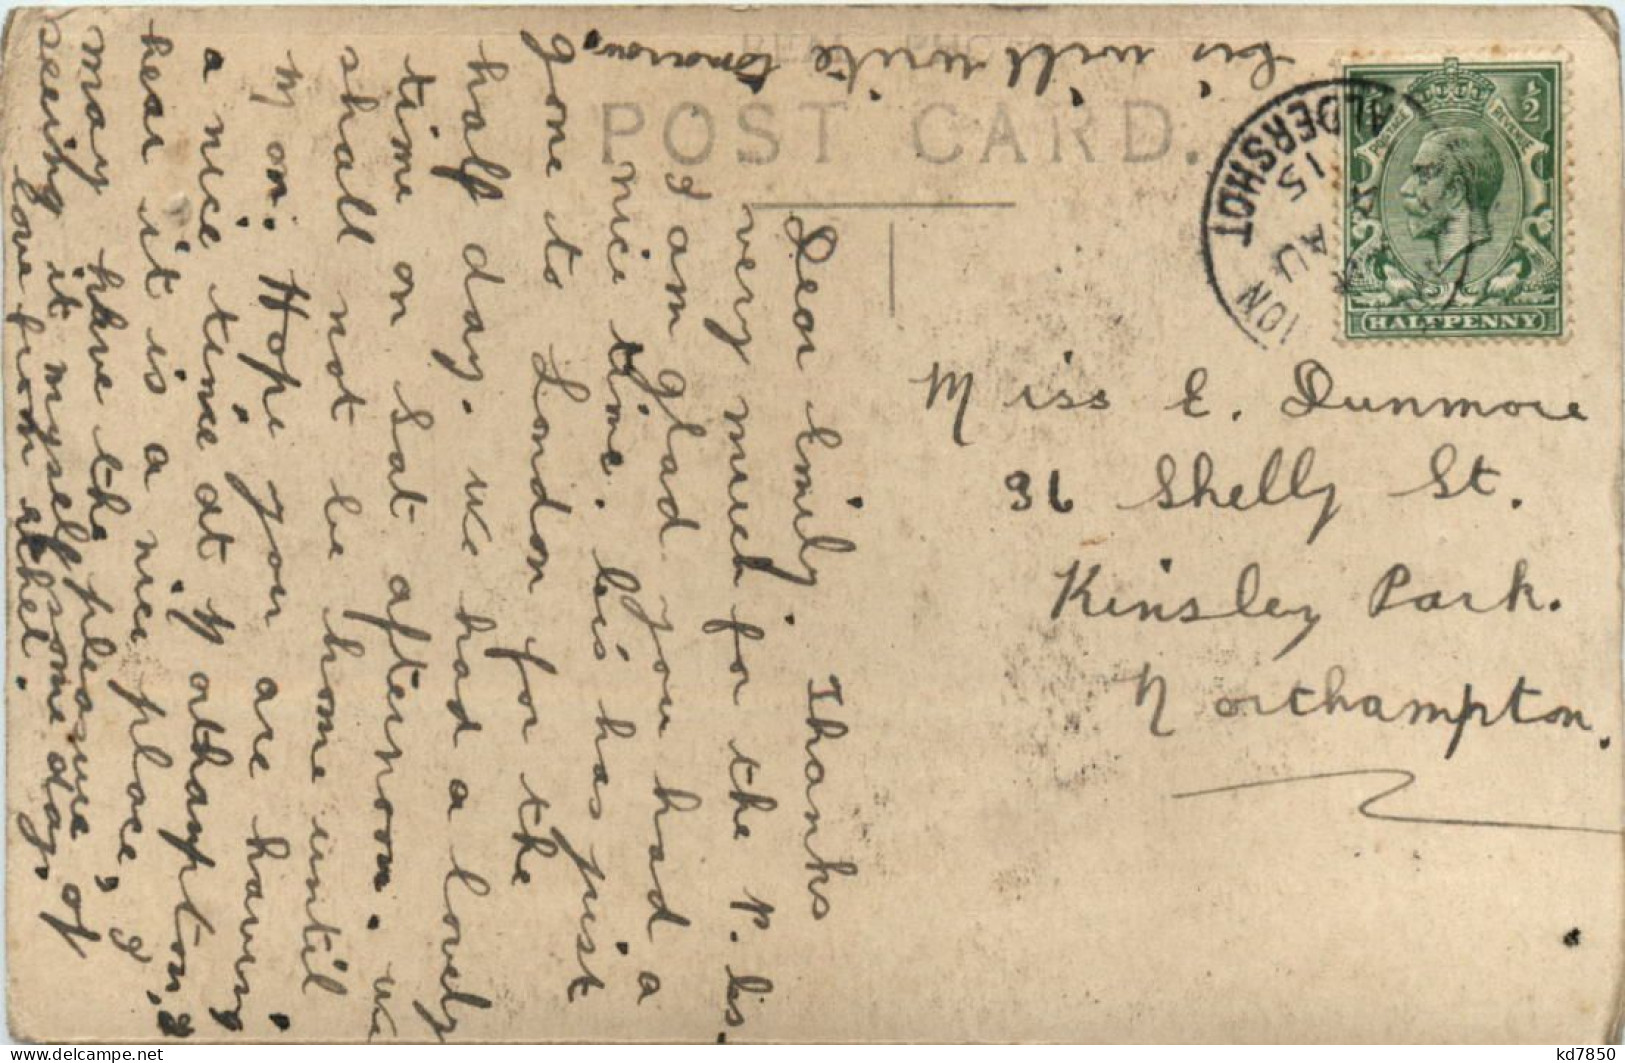 POST CARD.
Lis will write tomorow.
Dear Emily. Thanks
very much for the P. Lis.
I am glad you had a
nice time. Lis has just
gone to London for the
half day. We had a lovely
time on Sat afternoon. We
shall not be home until
Mon. Hope you are having
a nice time at Northampton, I
hear it is a nice place, I
may have the pleasure of
seeing it myself some day.
love from
HALFPENNY
POSTAGE
REVENUE
½
ALDERSHOT
15 AU
Miss E. Dunmore
Shelly St.
Kinsley Park.
Northampton.
kd7850